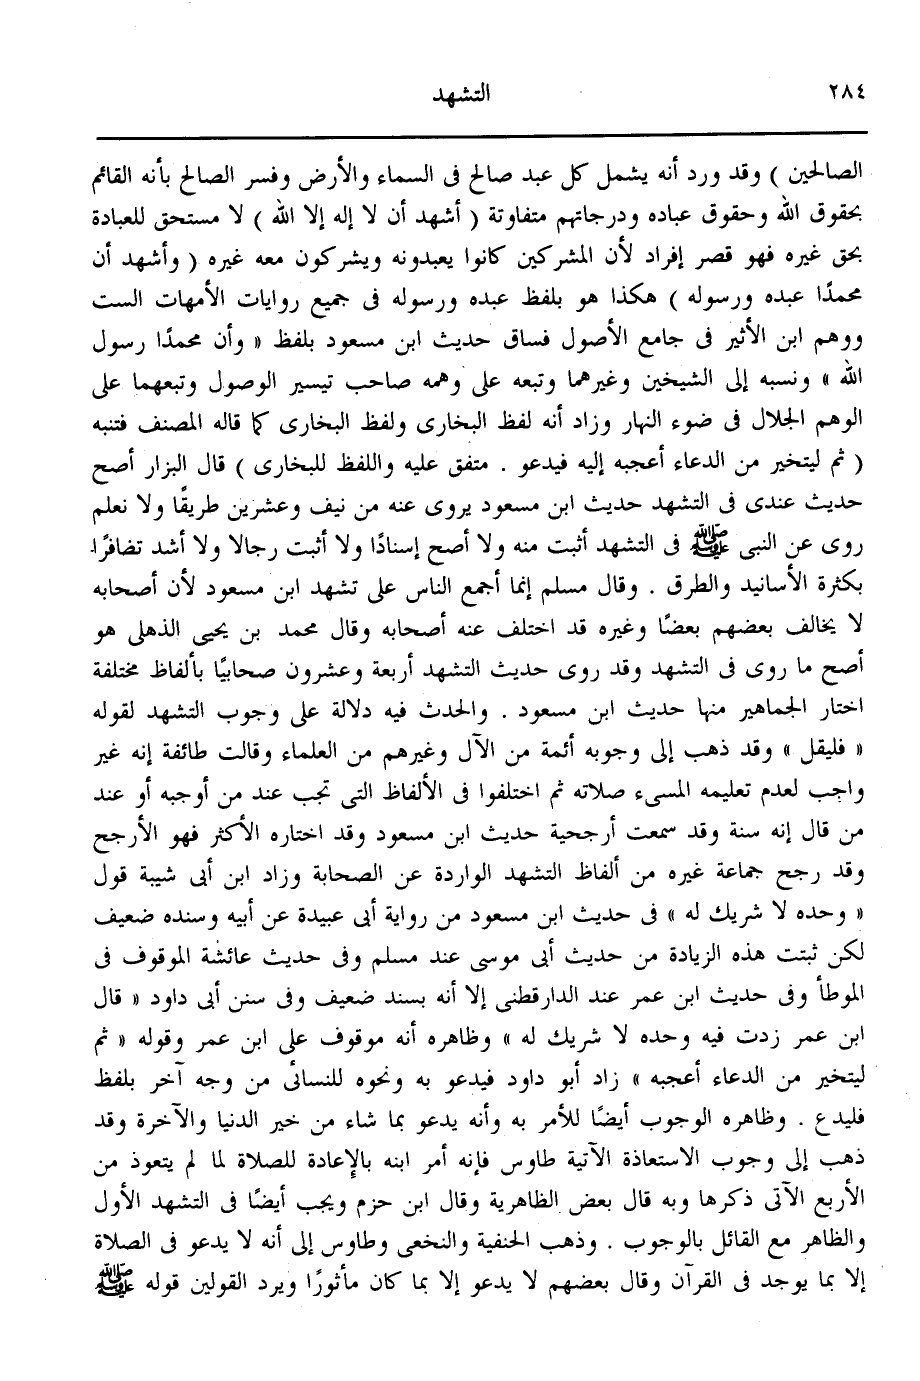 ٢٨٤
التشهد
الصالحين ) وقد ورد أنه يشمل كل عبد صالح فى السماء والأرض وفسر الصالح بأنه القائم
بحقوق الله وحقوق عباده ودرجاتهم متفاوتة ( أشهد أن لا إله إلا الله ) لا مستحق للعبادة
بحق غيره فهو قصر إفراد لأن المشركين كانوا يعبدونه ويشركون معه غيره ( وأشهد أن
محمدًا عبده ورسوله ) هكذا هو بلفظ عبده ورسوله فى جميع روايات الأمهات الست
ووهم ابن الأثير فى جامع الأصول فساق حديث ابن مسعود بلفظ « وأن محمدًا رسول
الله » ونسبه إلى الشيخين وغيرهما وتبعه على وهمه صاحب تيسير الوصول وتبعهما على
الوهم الجلال فى ضوء النهار وزاد أنه لفظ البخارى ولفظ البخارى كما قاله المصنف فتنبه
( ثم ليتخير من الدعاء أعجبه إليه فيدعو . متفق عليه واللفظ للبخارى ) قال البزار أصح
حديث عندى فى التشهد حديث ابن مسعود يروى عنه من نيف وعشرين طريقًا ولا نعلم
روى عن النبى ﷺ فى التشهد أثبت منه ولا أصح إسنادًا ولا أثبت رجالا ولا أشد تضافرًا
بكثرة الأسانيد والطرق . وقال مسلم إنما أجمع الناس على تشهد ابن مسعود لأن أصحابه
لا يخالف بعضهم بعضًا وغيره قد اختلف عنه أصحابه وقال محمد بن يحيى الذهلى هو
أصح ما روى فى التشهد وقد روى حديث التشهد أربعة وعشرون صحابيًا بألفاظ مختلفة
اختار الجماهير منها حديث ابن مسعود . والحدث فيه دلالة على وجوب التشهد لقوله
« فليقل » وقد ذهب إلى وجوبه أئمة من الآل وغيرهم من العلماء وقالت طائفة إنه غير
واجب لعدم تعليمه المسىء صلاته ثم اختلفوا فى الألفاظ التى تجب عند من أوجبه أو عند
من قال إنه سنة وقد سمعت أرجحية حديث ابن مسعود وقد اختاره الأكثر فهو الأرجح
وقد رجح جماعة غيره من ألفاظ التشهد الواردة عن الصحابة وزاد ابن أبى شيبة قول
« وحده لا شريك له » فى حديث ابن مسعود من رواية أبى عبيدة عن أبيه وسنده ضعيف
لكن ثبتت هذه الزيادة من حديث أبى موسى عند مسلم وفى حديث عائشة الموقوف فى
الموطأ وفى حديث ابن عمر عند الدارقطنى إلا أنه بسند ضعيف وفى سنن أبى داود « قال
ابن عمر زدت فيه وحده لا شريك له » وظاهره أنه موقوف على ابن عمر وقوله « ثم
ليتخير من الدعاء أعجبه » زاد أبو داود فيدعو به ونحوه للنسائى من وجه آخر بلفظ
فليدع . وظاهره الوجوب أيضًا للأمر به وأنه يدعو بما شاء من خير الدنيا والآخرة وقد
ذهب إلى وجوب الاستعاذة الآتية طاوس فإنه أمر ابنه بالإعادة للصلاة لما لم يتعوذ من
الأربع الآتى ذكرها وبه قال بعض الظاهرية وقال ابن حزم ويجب أيضًا فى التشهد الأول
والظاهر مع القائل بالوجوب . وذهب الحنفية والنخعى وطاوس إلى أنه لا يدعو فى الصلاة
إلا بما يوجد فى القرآن وقال بعضهم لا يدعو إلا بما كان مأثورًا ويرد القولين قوله ﷺ